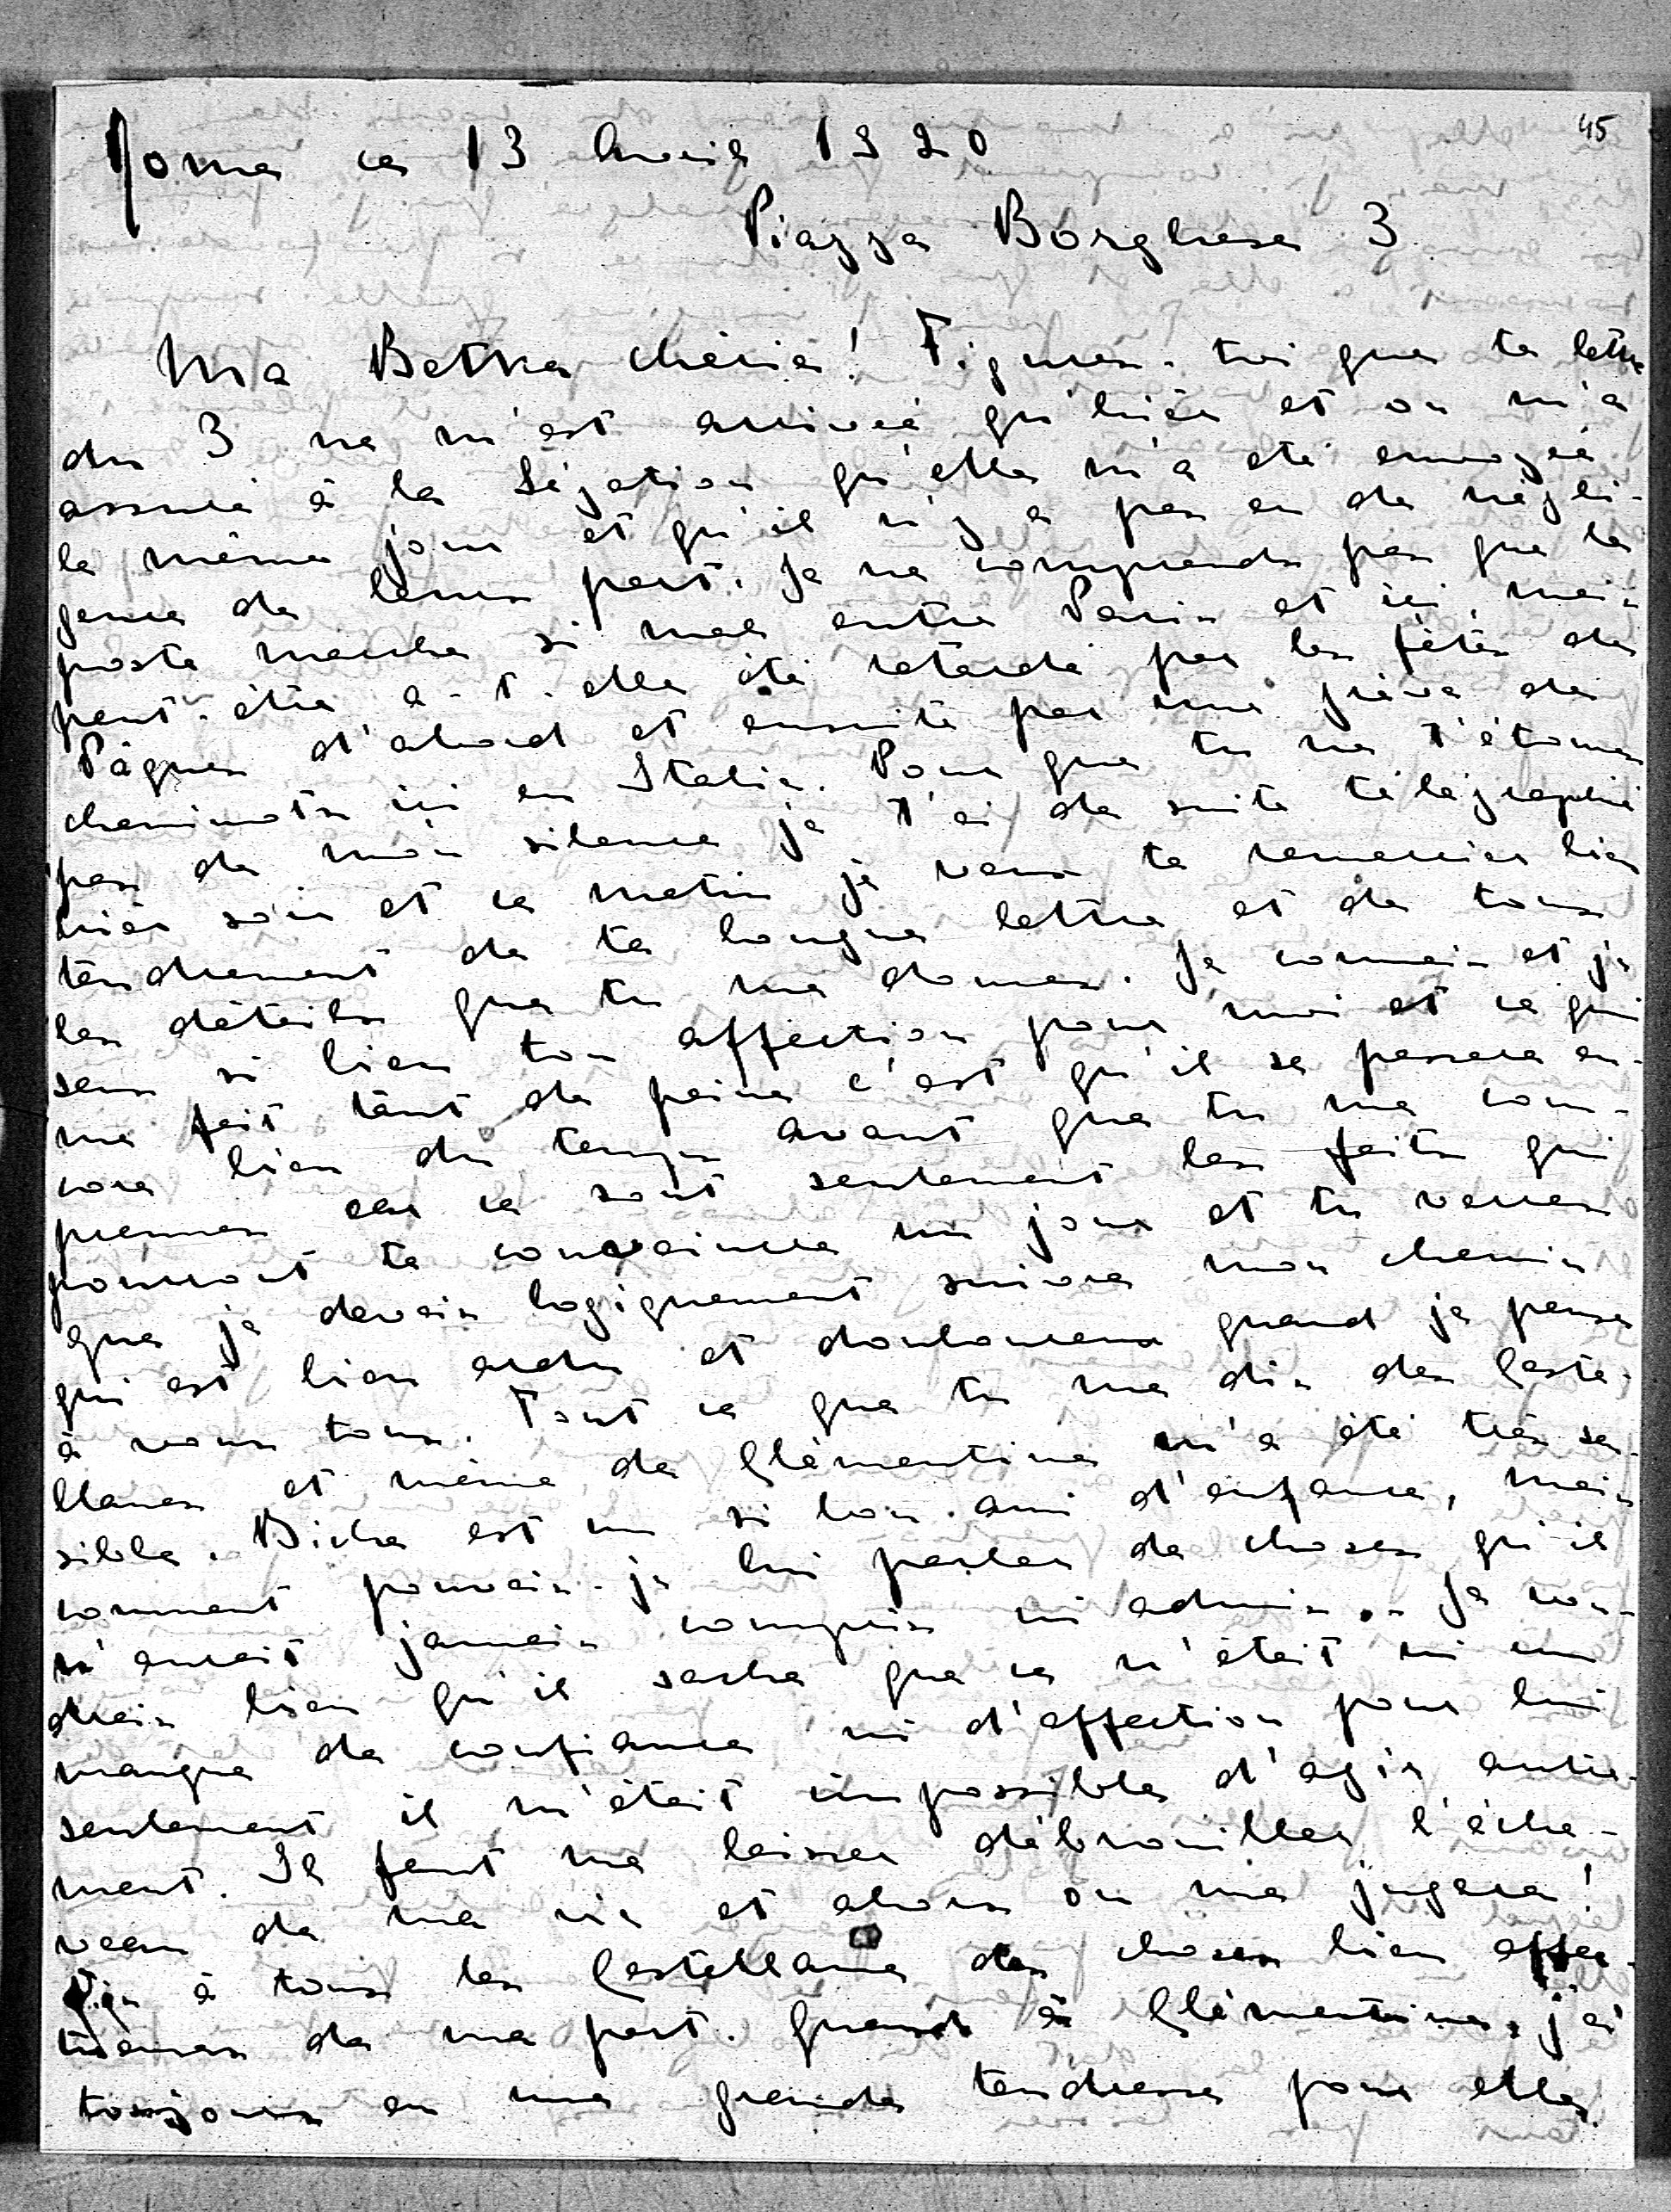 45
Roma ce 13 Avril 1920
Piazza Borghese 3
Ma Betka chérie! Figures-toi que ta lettre
du 3 ne m'est arrivée qu'hier et on m'a
assuré à la Légation qu'elle m'a été envoyée
le même jour et qu'il n'y a pas eu de négli-
gence de leur part. Je ne comprends pas que la
poste marche si mal entre Paris et ici, mais
peut-être a-t-elle été retardé par les fêtes de
Pâques d'abord et ensuite par une grève de
cheminots ici en Italie. Pour que tu ne t'étonnes
pas de mon silence je t'ai de suite télégraphié
hier soir et ce matin je veux te remercier bien
tendrement de ta longue lettre et de tous
les détails que tu me donnes. Je connais et je
sens si bien ton affection pour moi et ce qui
me fait tant de peine c'est qu'il se passera en-
core bien du temps avant que tu me com-
prennes car ce sont seulement les faits qui
pourront te convaincre un jour et tu verras
que je devais logiquement suivre mon chemin
qui est bien ardu et douloureux quand je pense
à vous tous. Tout ce que tu me dis des Caste-
llanes et même de Clémentine m'a été très sen-
sible. Biche est un si bon ami d'enfance, mais
comment pouvais-je lui parler de choses qu'il
n'aurait jamais compris ni admis.. Je vou-
drais bien qu'il sache que ce n'était ni un
manque de confiance ni d'affection pour lui
seulement il m'était impossible d'agir autre-
ment. Il faut me laisser débrouiller l'éche-
veau de ma vie et alors on me jugera!
Dis à tous les Castellane des choses bien affec-
tueuses de ma part. Quand à Clémentine, j'ai
toujours eu une grande tendresse pour elle.